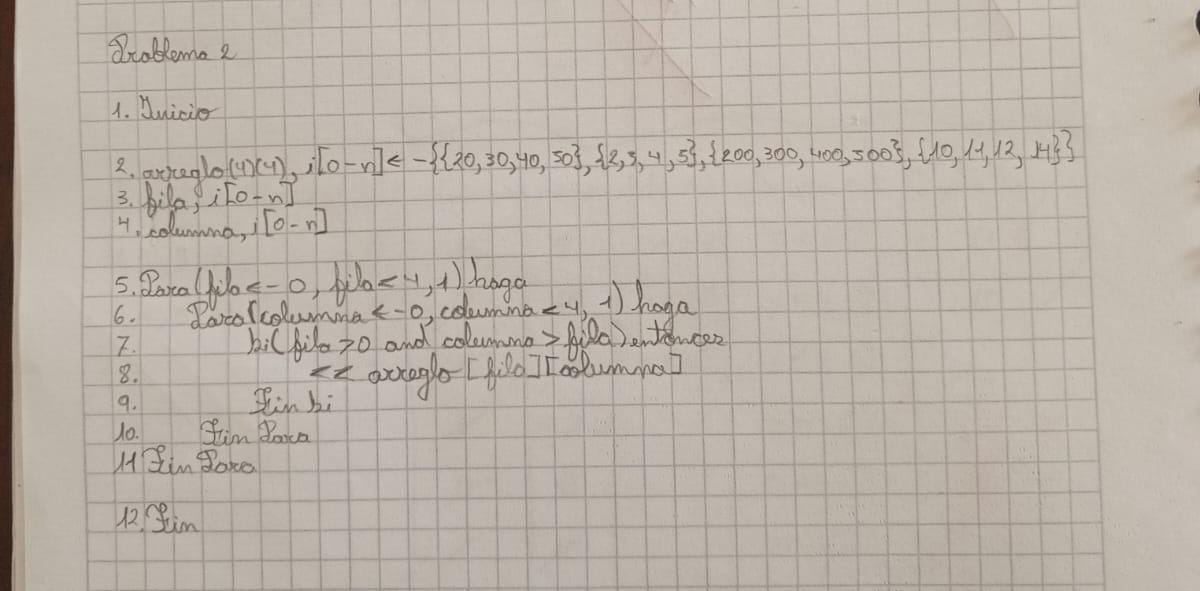 Problema 2
1. Inicio
2. arreglo(4)(4), i[0-n]<-{{20,30,40,50},{2,3,4,5},{200,300,400,500},{10,11,12,14}}
3. fila, i[0-n]
4. columna, i[0-n]
5. Para(fila<-0, fila<4, 1) haga
6. Para(columna<-0, columna<4, 1) haga
7. Si(fila>0 and columna>fila) entonces
8. << arreglo[fila][columna]
9. Fin Si
10. Fin Para
11 Fin Para
12. Fin